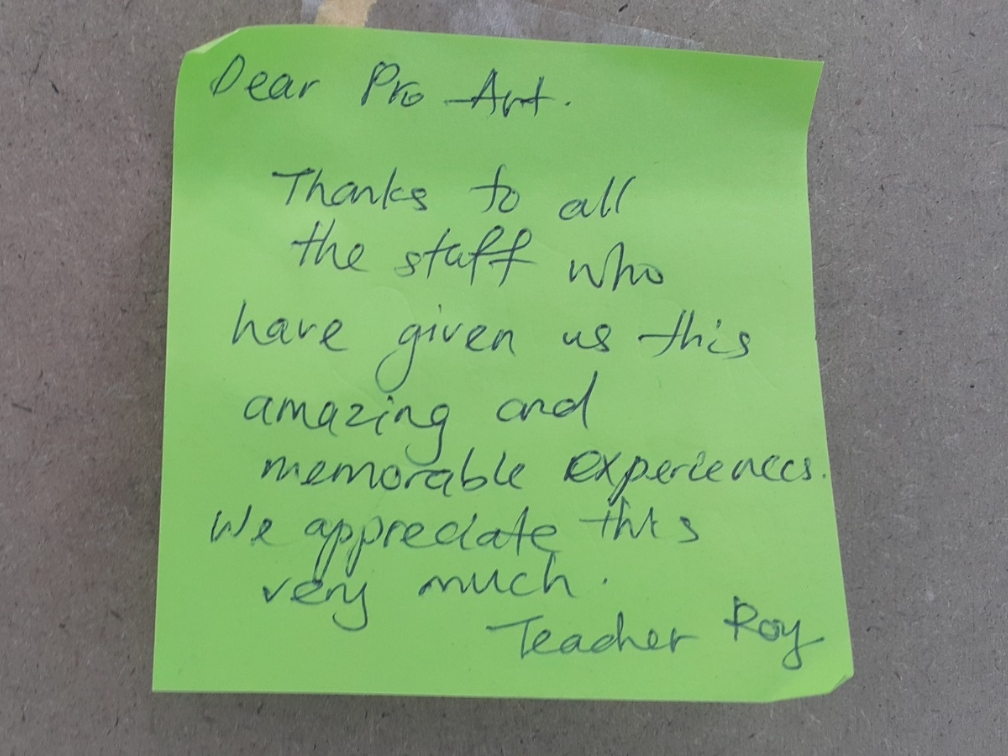 Dear Pro Art.
Thanks to all
the staff who
have given us this
amazing and
memorable experiences.
We appreciate this
very much.
Teacher Roy